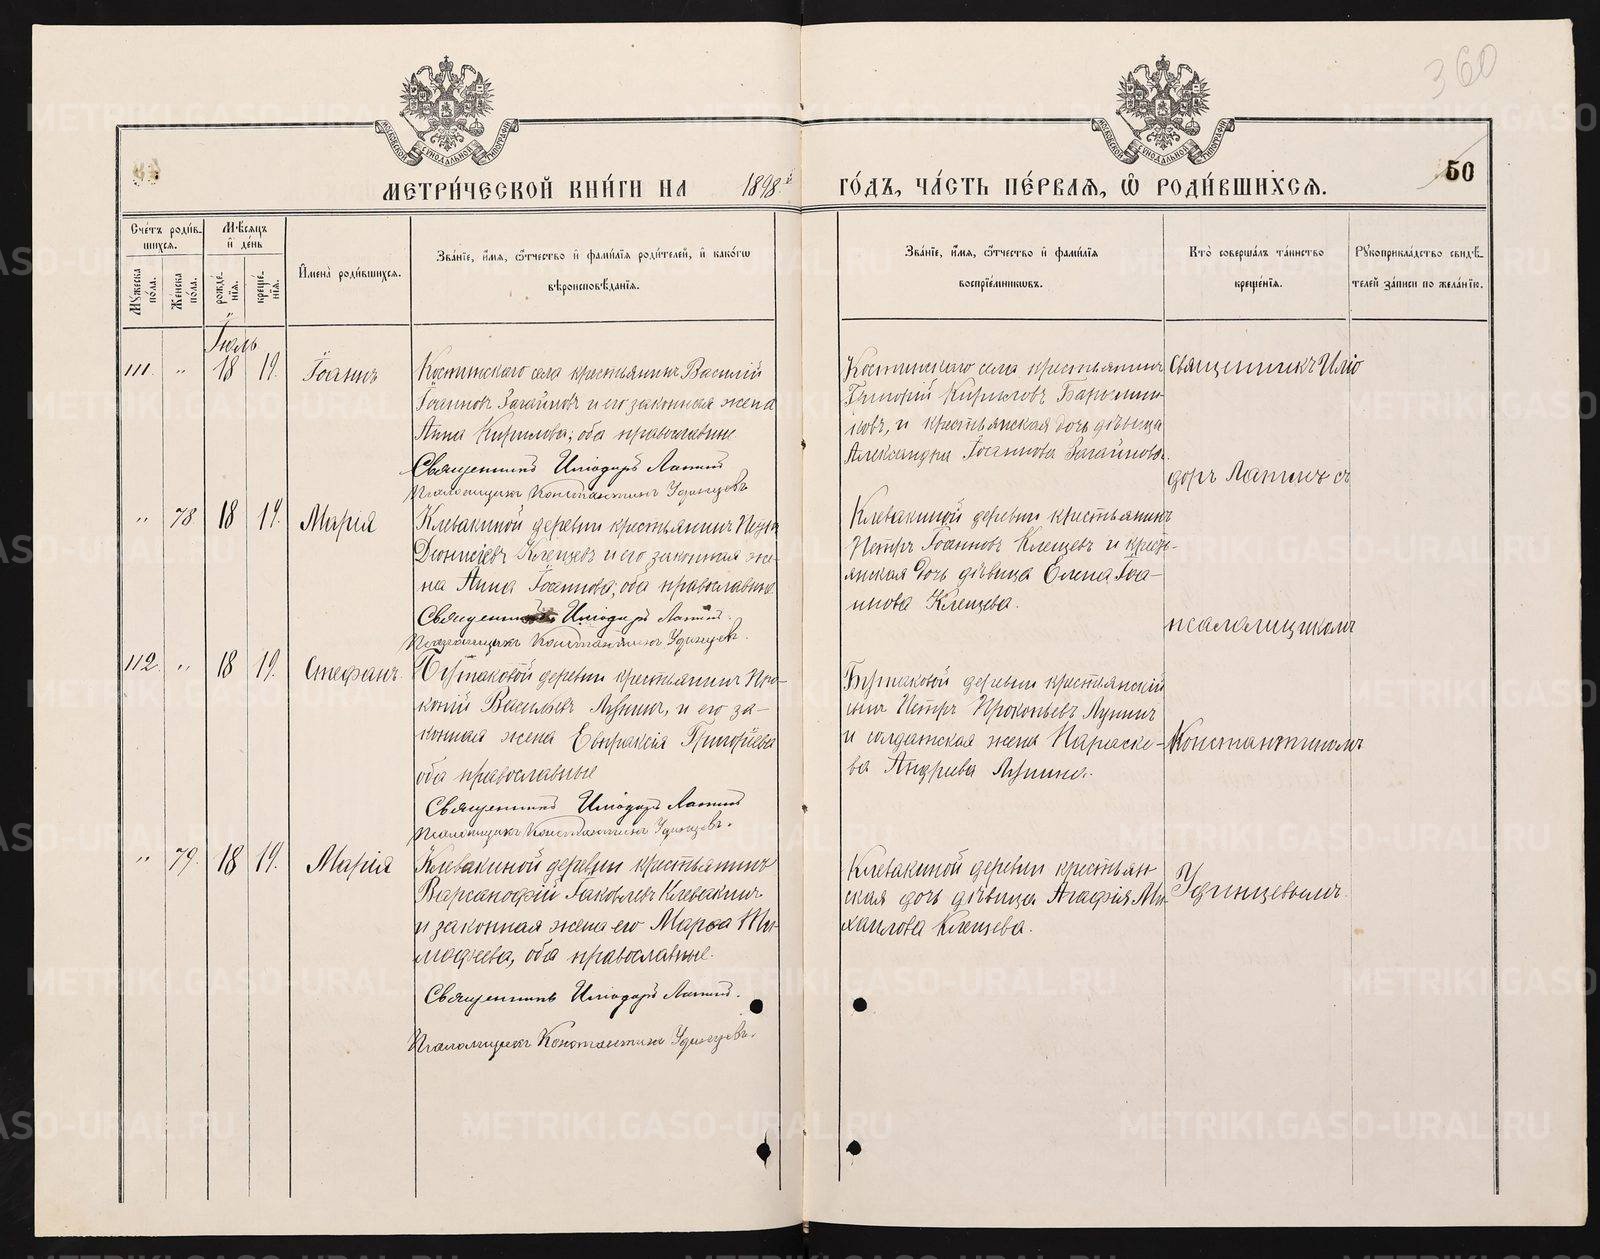 360
50
МОСКОВСКОЙ СѴНОДАЛЬНОЙ ТИПОГРАФІИ
МОСКОВСКОЙ СѴНОДАЛЬНОЙ ТИПОГРАФІИ
МЕТРИ́ЧЕСКОЙ КНИ́ГИ НА 1898й ГО́ДЪ, ЧА́СТЬ ПЕ́РВАѦ, Ѽ РОДИ́ВШИХСѦ.
Сче́тъ роди́в-
шихся.
Мѣ́сяцъ
и҆ де́нь
Му́жеска по́ла.
Же́нска по́ла.
рожде́-
нїя.
креще́-
нїя.
И҆мена̀ роди́вшихся.
Зва́нїе, и҆́мя, ѻ҆́тчество и҆ фами́лїя роди́телей, и҆ како́гѡ
вѣроисповѣ́данїя.
Зва́нїе, и҆́мя, ѻ҆́тчество и҆ фами́лїя
воспрїе́мникѡвъ.
Кто̀ соверша́лъ та́инство
креще́нїя.
Рукоприкла́дство свидѣ́-
телей за́писи по жела́нїю.
Іюль
111. " 18 19. Іоаннъ
Костинскаго села крестьянинъ Василій
Іоанновъ Загайновъ и его законная жена
Анна Кирилова; оба православные
Священникъ Иліодоръ Лапинъ
Псаломщикъ Константинъ Удинцевъ
Костинскаго села крестьянинъ
Григорій Кириловъ Барышни-
ковъ, и крестьянская дочь дѣвица
Александра Іоаннова Загайнова.
Священникъ Илiо
доръ Лапинъ съ
" 78 18 19. Марія
Клевакиной деревни крестьянинъ
Діонисіевъ Клещевъ и его законная же-
на Анна Іоаннова; оба православные.
Священникъ Иліодоръ Лапинъ.
Псаломщикъ Константинъ Удинцевъ.
Клевакиной деревни крестьянинъ
Петръ Іоанновъ Клещевъ и крестъ-
янская дочь дѣвица Елена Іоа-
ннова Клещева.
псаломщикомъ
112. " 18 19. Стефанъ.
Бурмаковой деревни крестьянинъ Про-
копій Васильевъ Лунинъ, и его за-
конная жена Евпраксія Григоріева
оба православные
Священникъ Иліодоръ Лапинъ
Псаломщикъ Константинъ Удинцевъ.
Бурмаковой деревни крестьянскій
сынъ Петръ Прокопьевъ Лунинъ
и солдатская жена Параске-
ва Андреева Лунина.
Константиномъ
" 79. 18 19. Марія
Клевакиной деревни крестьянинъ
Варсанофій Іаковлевъ Клевакинъ
и законная жена его Марѳа Ти-
мофеева, оба православные.
Священникъ Иліодоръ Лапинъ.
Псаломщикъ Константинъ Удинцевъ.
Клевакиной деревни крестьян
ская дочь дѣвица Агафія Ми-
хаилова Клещева.
Удинцевымъ.
METRIKI.GASO-URAL.RU